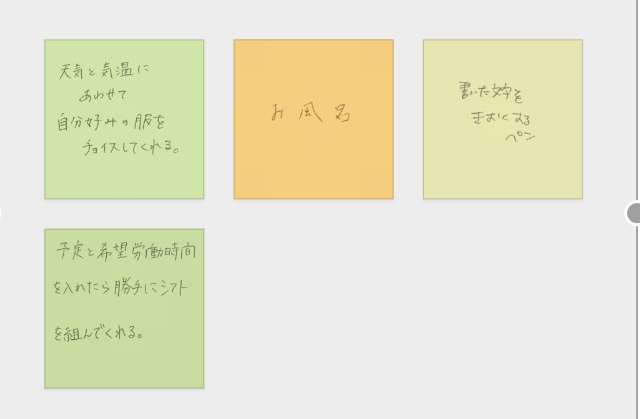 天気と気温に
あわせて
自分好みの服を
チョイスしてくれる。
お風呂
書いた文字を
きおくする
ペン
予定と希望労働時間
を入れたら勝手にシフト
を組んでくれる。